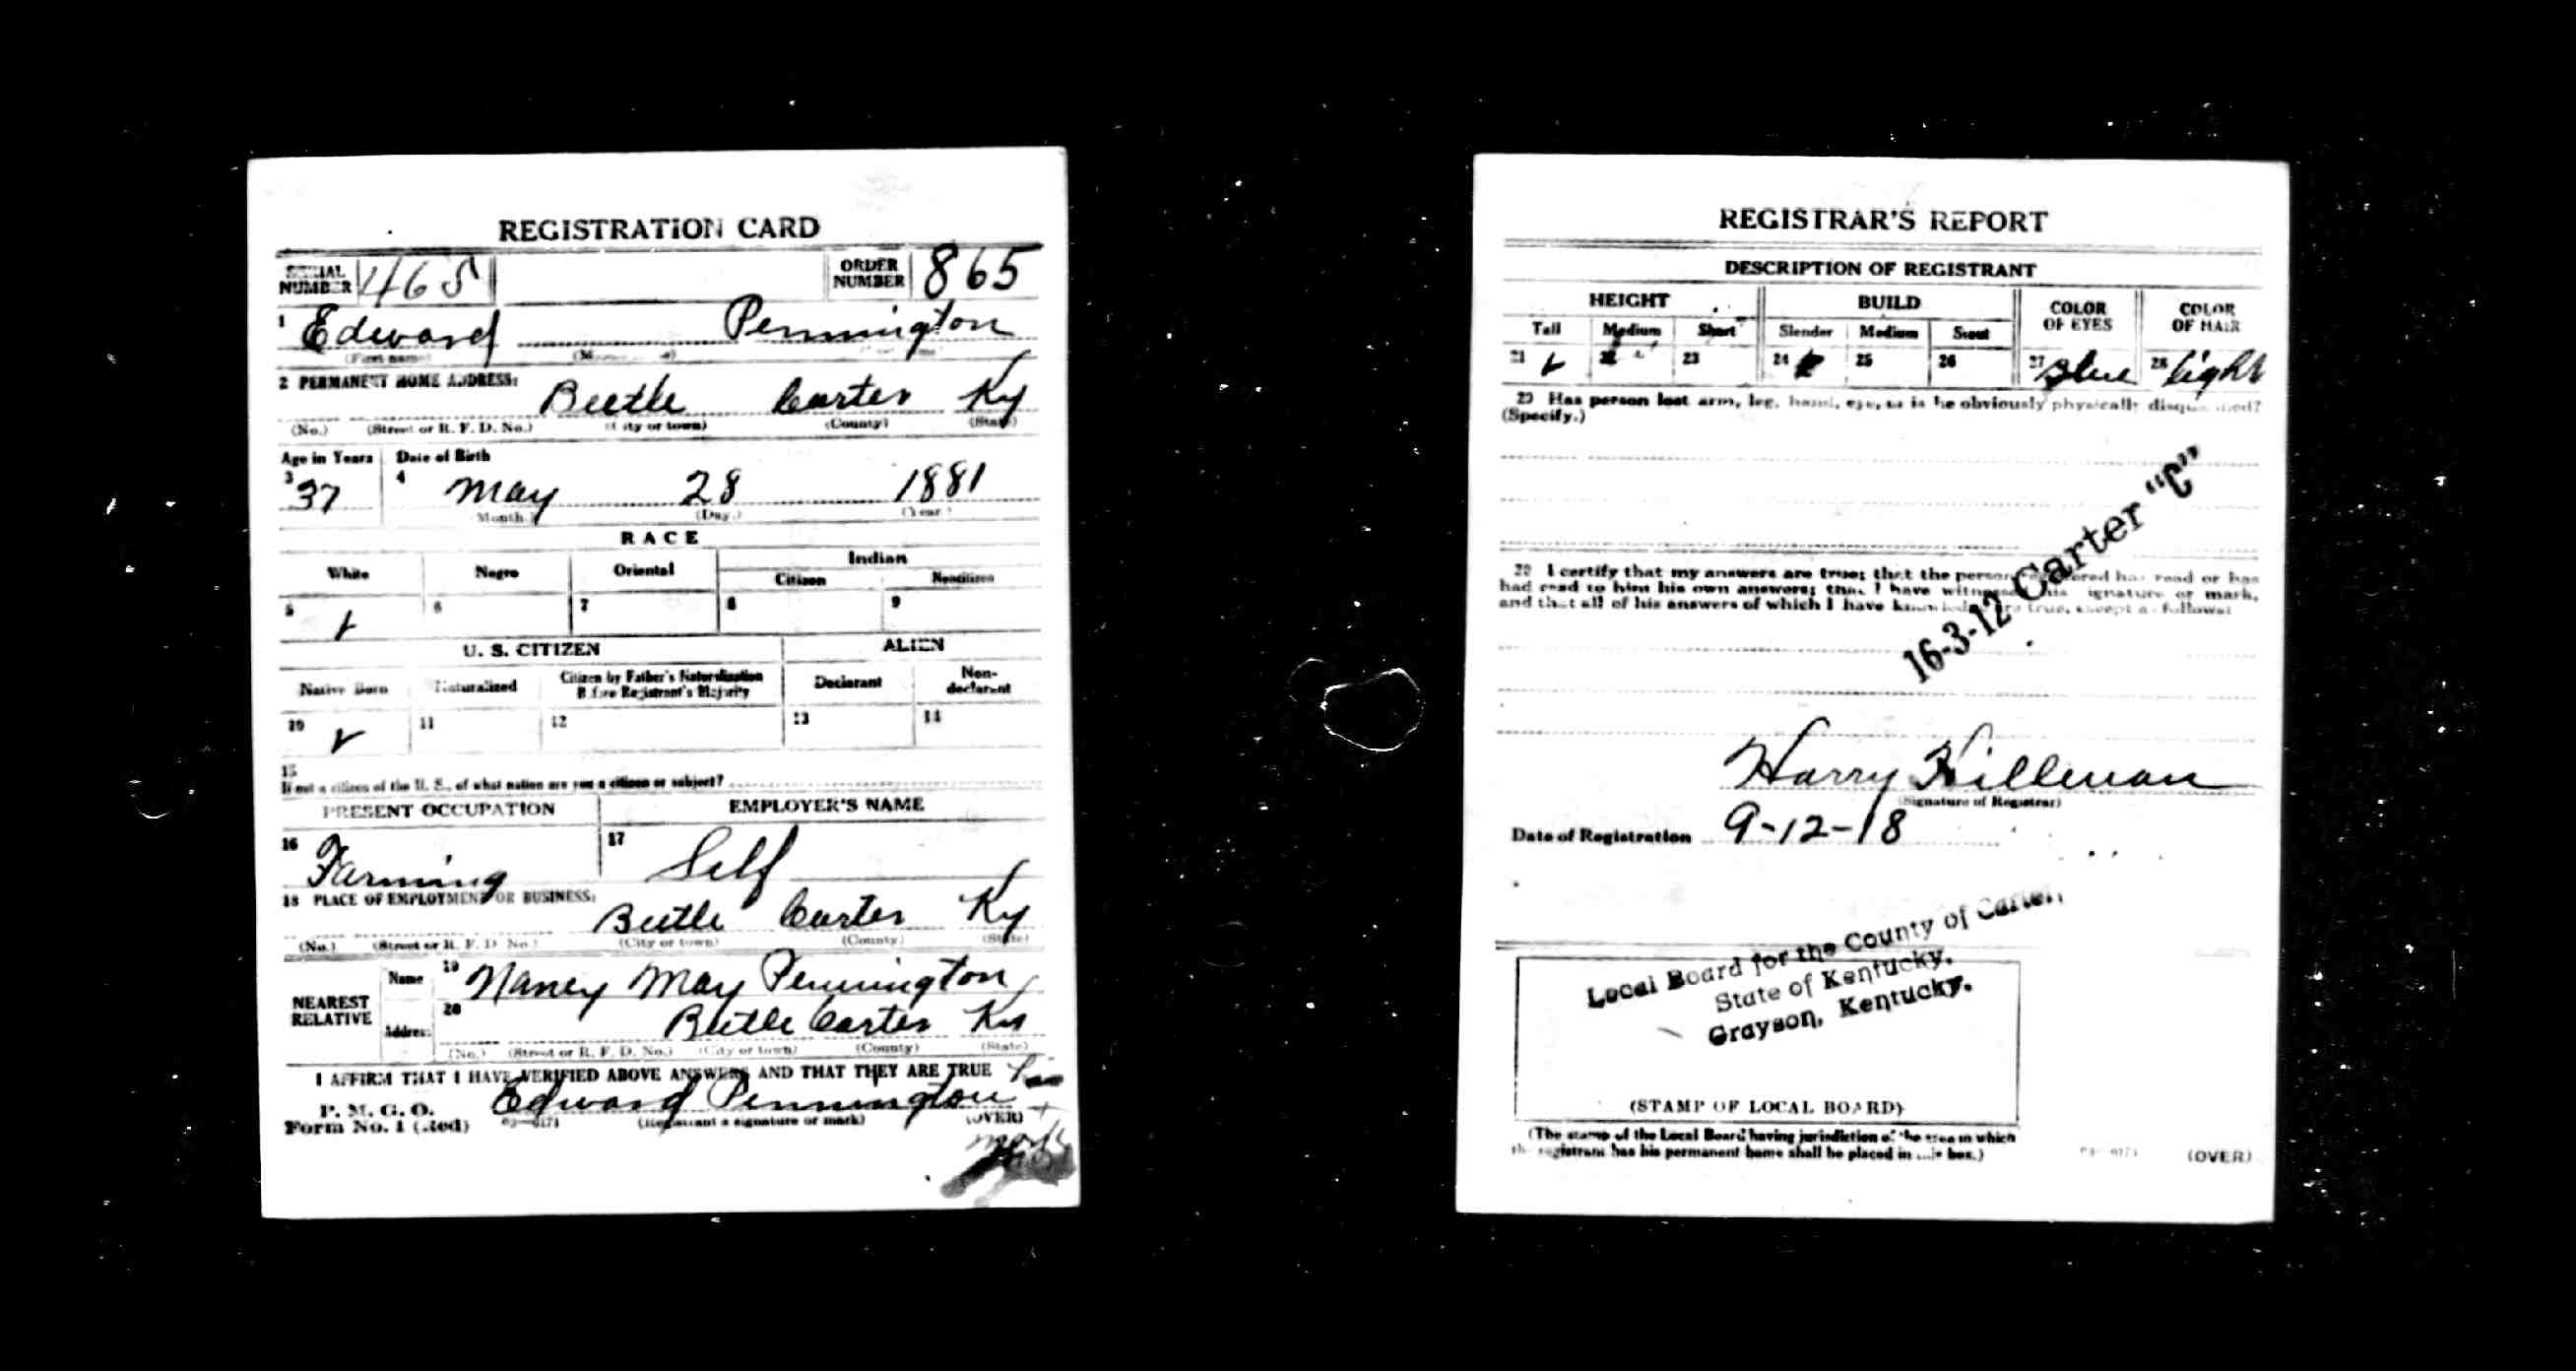 REGISTRATION CARD
SERIAL NUMBER 465 ORDER NUMBER 865
1 Edward Pennington
(First name)
2 PERMANENT HOME ADDRESS: Beetle Carter Ky
(No.) (Street or R. F. D. No.) (City or town) (County) (State)
Age in Years Date of Birth
3 37 4 May 28 1881
(Month.) (Day.) (Year.)
RACE
White Negro Oriental Indian
Citizen Noncitizen
5 ✓ 6 7 8 9
U. S. CITIZEN ALIEN
Native Born Naturalized Citizen by Father's Naturalization Before Registrant's Majority Declarant Non-declarant
10 ✓ 11 12 13 14
15
If not a citizen of the U. S., of what nation are you a citizen or subject?
PRESENT OCCUPATION EMPLOYER'S NAME
16 Farming 17 Self
18 PLACE OF EMPLOYMENT OR BUSINESS:
Beetle Carter Ky
(No.) (Street or R. F. D. No.) (City or town) (County) (State)
NEAREST RELATIVE Name 19 Nancy May Pennington
Address 20 Beetle Carter Ky
(No.) (Street or R. F. D. No.) (City or town) (County) (State)
I AFFIRM THAT I HAVE VERIFIED ABOVE ANSWERS AND THAT THEY ARE TRUE his
P. M. G. O.
Form No. 1 (Red) Edward Pennington +
(Registrant's signature or mark) (OVER)
mark
REGISTRAR'S REPORT
DESCRIPTION OF REGISTRANT
HEIGHT BUILD COLOR OF EYES COLOR OF HAIR
Tall Medium Short Slender Medium Stout
21 ✓ 22 23 24 ✓ 25 26 27 Blue 28 Light
29 Has person lost arm, leg, hand, eye, or is he obviously physically disqualified?
(Specify.)
16-3-12 Carter "C"
30 I certify that my answers are true; that the person registered has read or has
had read to him his own answers; that I have witnessed his signature or mark,
and that all of his answers of which I have knowledge are true, except as follows:
Harry Hillman
(Signature of Registrar)
Date of Registration 9-12-18
Local Board for the County of Carter,
State of Kentucky,
Grayson, Kentucky.
(STAMP OF LOCAL BOARD)
(The stamp of the Local Board having jurisdiction of the area in which
the registrant has his permanent home shall be placed in this box.)
(OVER)